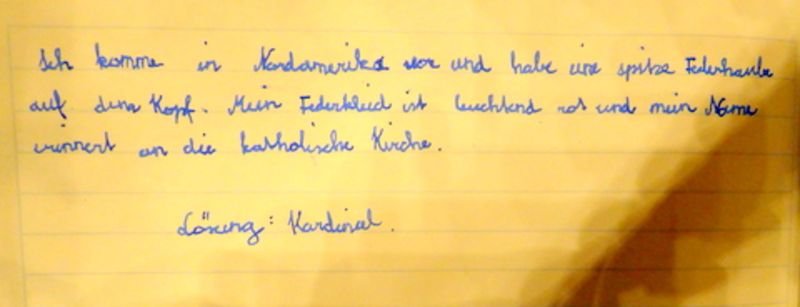 Ich komme in Nordamerika vor und habe eine spitze Federhaube
auf dem Kopf. Mein Federkleid ist leuchtend rot und mein Name
erinnert an die katholische Kirche.
Lösung: Kardinal.